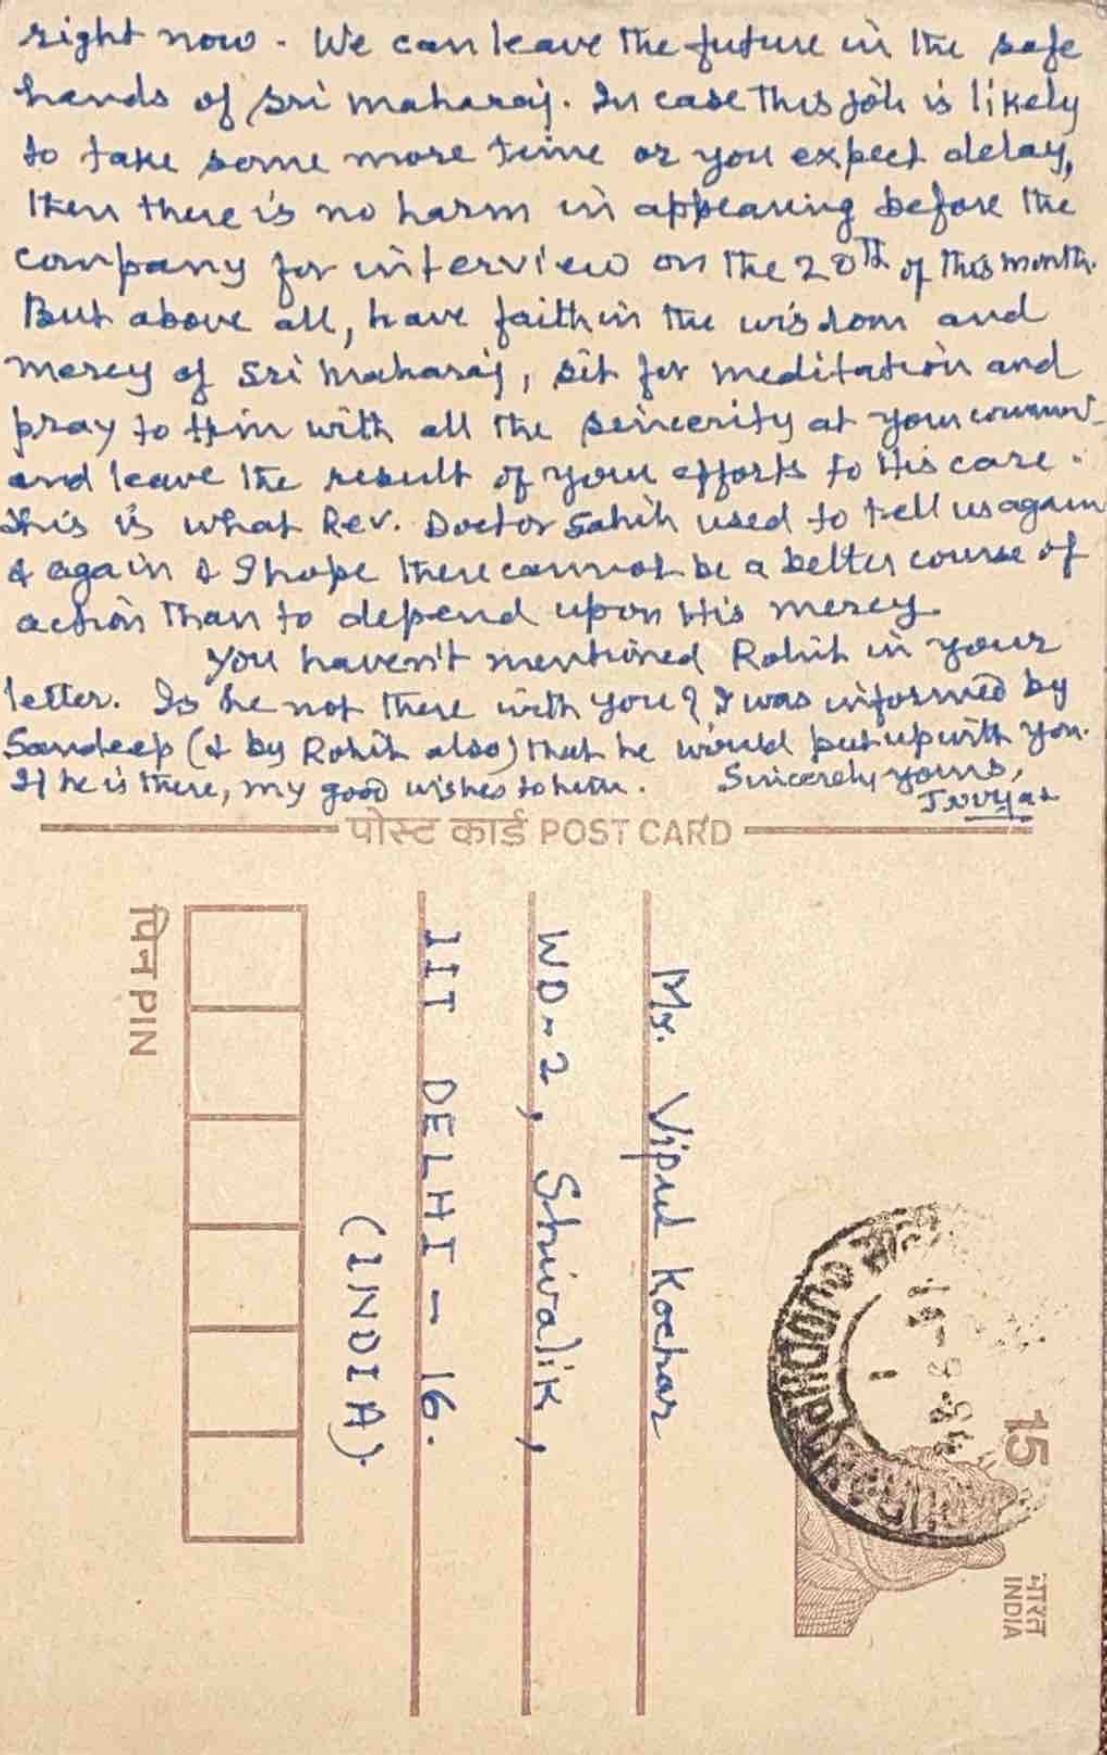 right now - We can leave the future in the safe
hands of Sri maharaj. In case this job is likely
to take some more time or you expect delay,
then there is no harm in appearing before the
company for interview on the 20th of this month.
But above all, have faith in the wisdom and
mercy of Sri Maharaj, sit for meditation and
pray to Him with all the sincerity at your
and leave the result of your efforts to His care.
This is what Rev. Doctor Sahib used to tell us again
& again & I hope there cannot be a better course of
action than to depend upon His mercy.
You haven't mentioned Rohit in your
letter. Is he not there with you? I was informed by
Sandeep (& by Rohit also) that he would put up with you.
If he is there, my good wishes to him. Sincerely yours,
पोस्ट कार्ड POST CARD
Mr. Vipul Kochar
WD-2, Shivalik,
IIT DELHI - 16.
(INDIA).
पिन PIN
15
भारत
INDIA